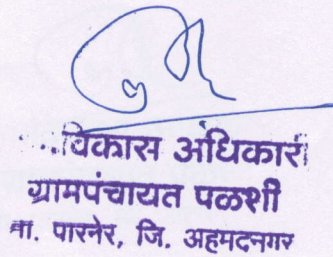 विकास अधिकारी
ग्रामपंचायत पळशी
ता. पारनेर, जि. अहमदनगर